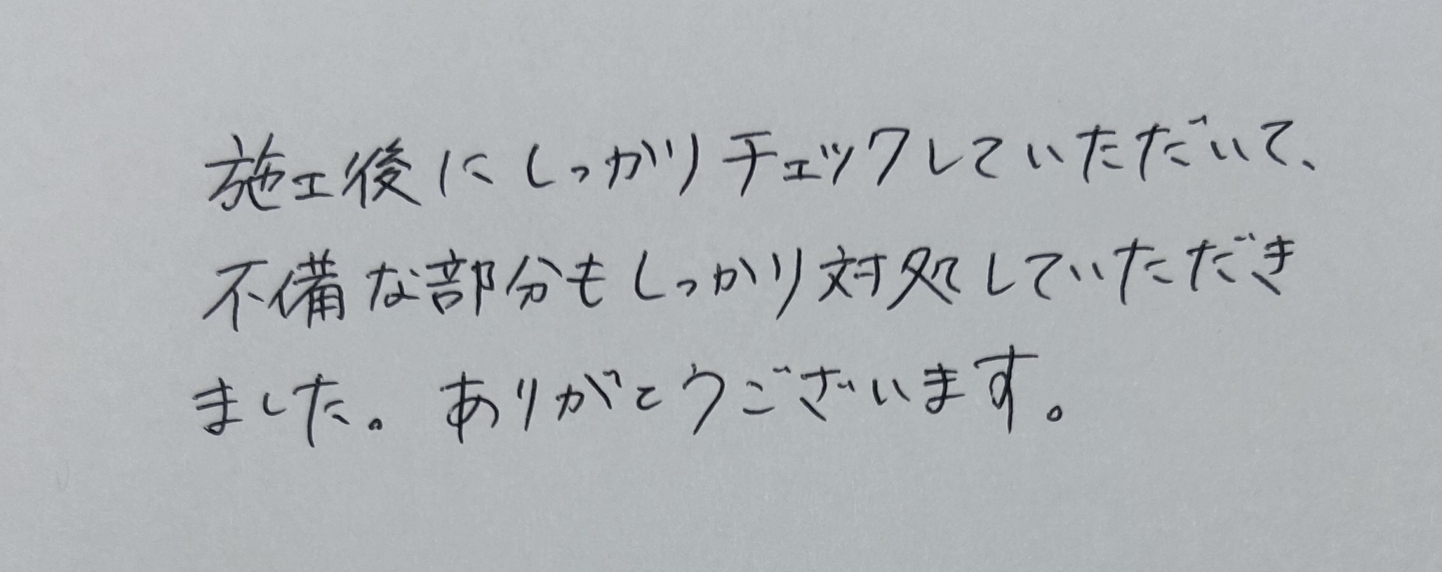 施工後にしっかりチェックしていただいて、
不備な部分もしっかり対処していただき
ました。ありがとうございます。